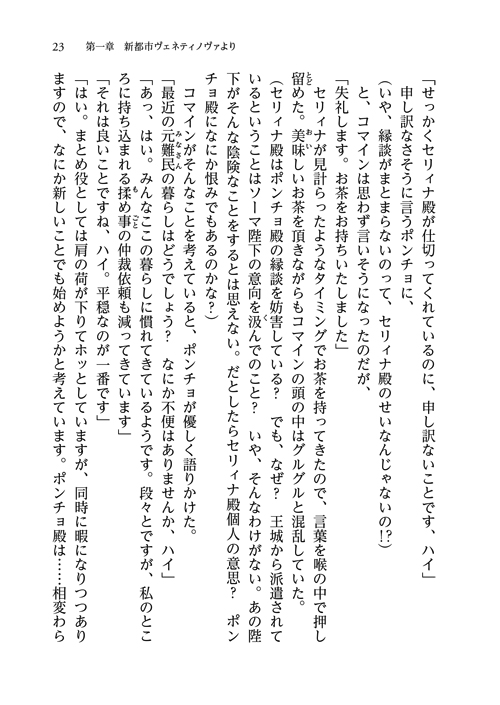 23　第一章　新都市ヴェネティノヴァより
「せっかくセリィナ殿が仕切ってくれているのに、申し訳ないことです、ハイ」
　申し訳なさそうに言うポンチョに、
（いや、縁談がまとまらないのって、セリィナ殿のせいなんじゃないの!?）
　と、コマインは思わず言いそうになったのだが、
「失礼します。お茶をお持ちいたしました」
　セリィナが見計らったようなタイミングでお茶を持ってきたので、言葉を喉の中で押し
留めた。美味しいお茶を頂きながらもコマインの頭の中はグルグルと混乱していた。
（セリィナ殿はポンチョ殿の縁談を妨害している？　でも、なぜ？　王城から派遣されて
いるということはソーマ陛下の意向を汲んでのこと？　いや、そんなわけがない。あの陛
下がそんな陰険なことをするとは思えない。だとしたらセリィナ殿個人の意思？　ポン
チョ殿になにか恨みでもあるのかな？）
　コマインがそんなことを考えていると、ポンチョが優しく語りかけた。
「最近の元難民の暮らしはどうでしょう？　なにか不便はありませんか、ハイ」
「あっ、はい。みんなここの暮らしに慣れてきているようです。段々とですが、私のとこ
ろに持ち込まれる揉め事の仲裁依頼も減ってきています」
「それは良いことですね、ハイ。平穏なのが一番です」
「はい。まとめ役としては肩の荷が下りてホッとしていますが、同時に暇になりつつあり
ますので、なにか新しいことでも始めようかと考えています。ポンチョ殿は……相変わら